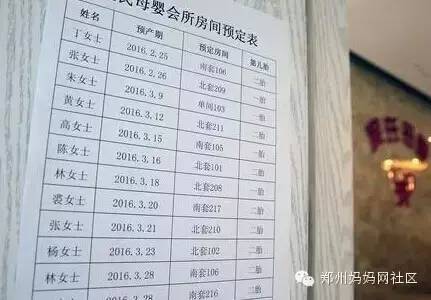 母婴会所房间预定表
姓名 预产期 预定房间 第几胎
丁女士 2016.2.25 南套106 二胎
张女士 2016.2.26 北套209 二胎
朱女士 2016.3.9 单间103 一胎
黄女士 2016.3.12 北套211 二胎
高女士 2016.3.15 南套105 一胎
陈女士 2016.3.16 北套101 二胎
林女士 2016.3.18 北套208 一胎
裘女士 2016.3.20 南套217 二胎
张女士 2016.3.21 北套210 二胎
杨女士 2016.3.23 北套102 二胎
林女士 2016.3.28 南套106 二胎
2016.3.28 南套216 二胎
郑州妈妈网社区